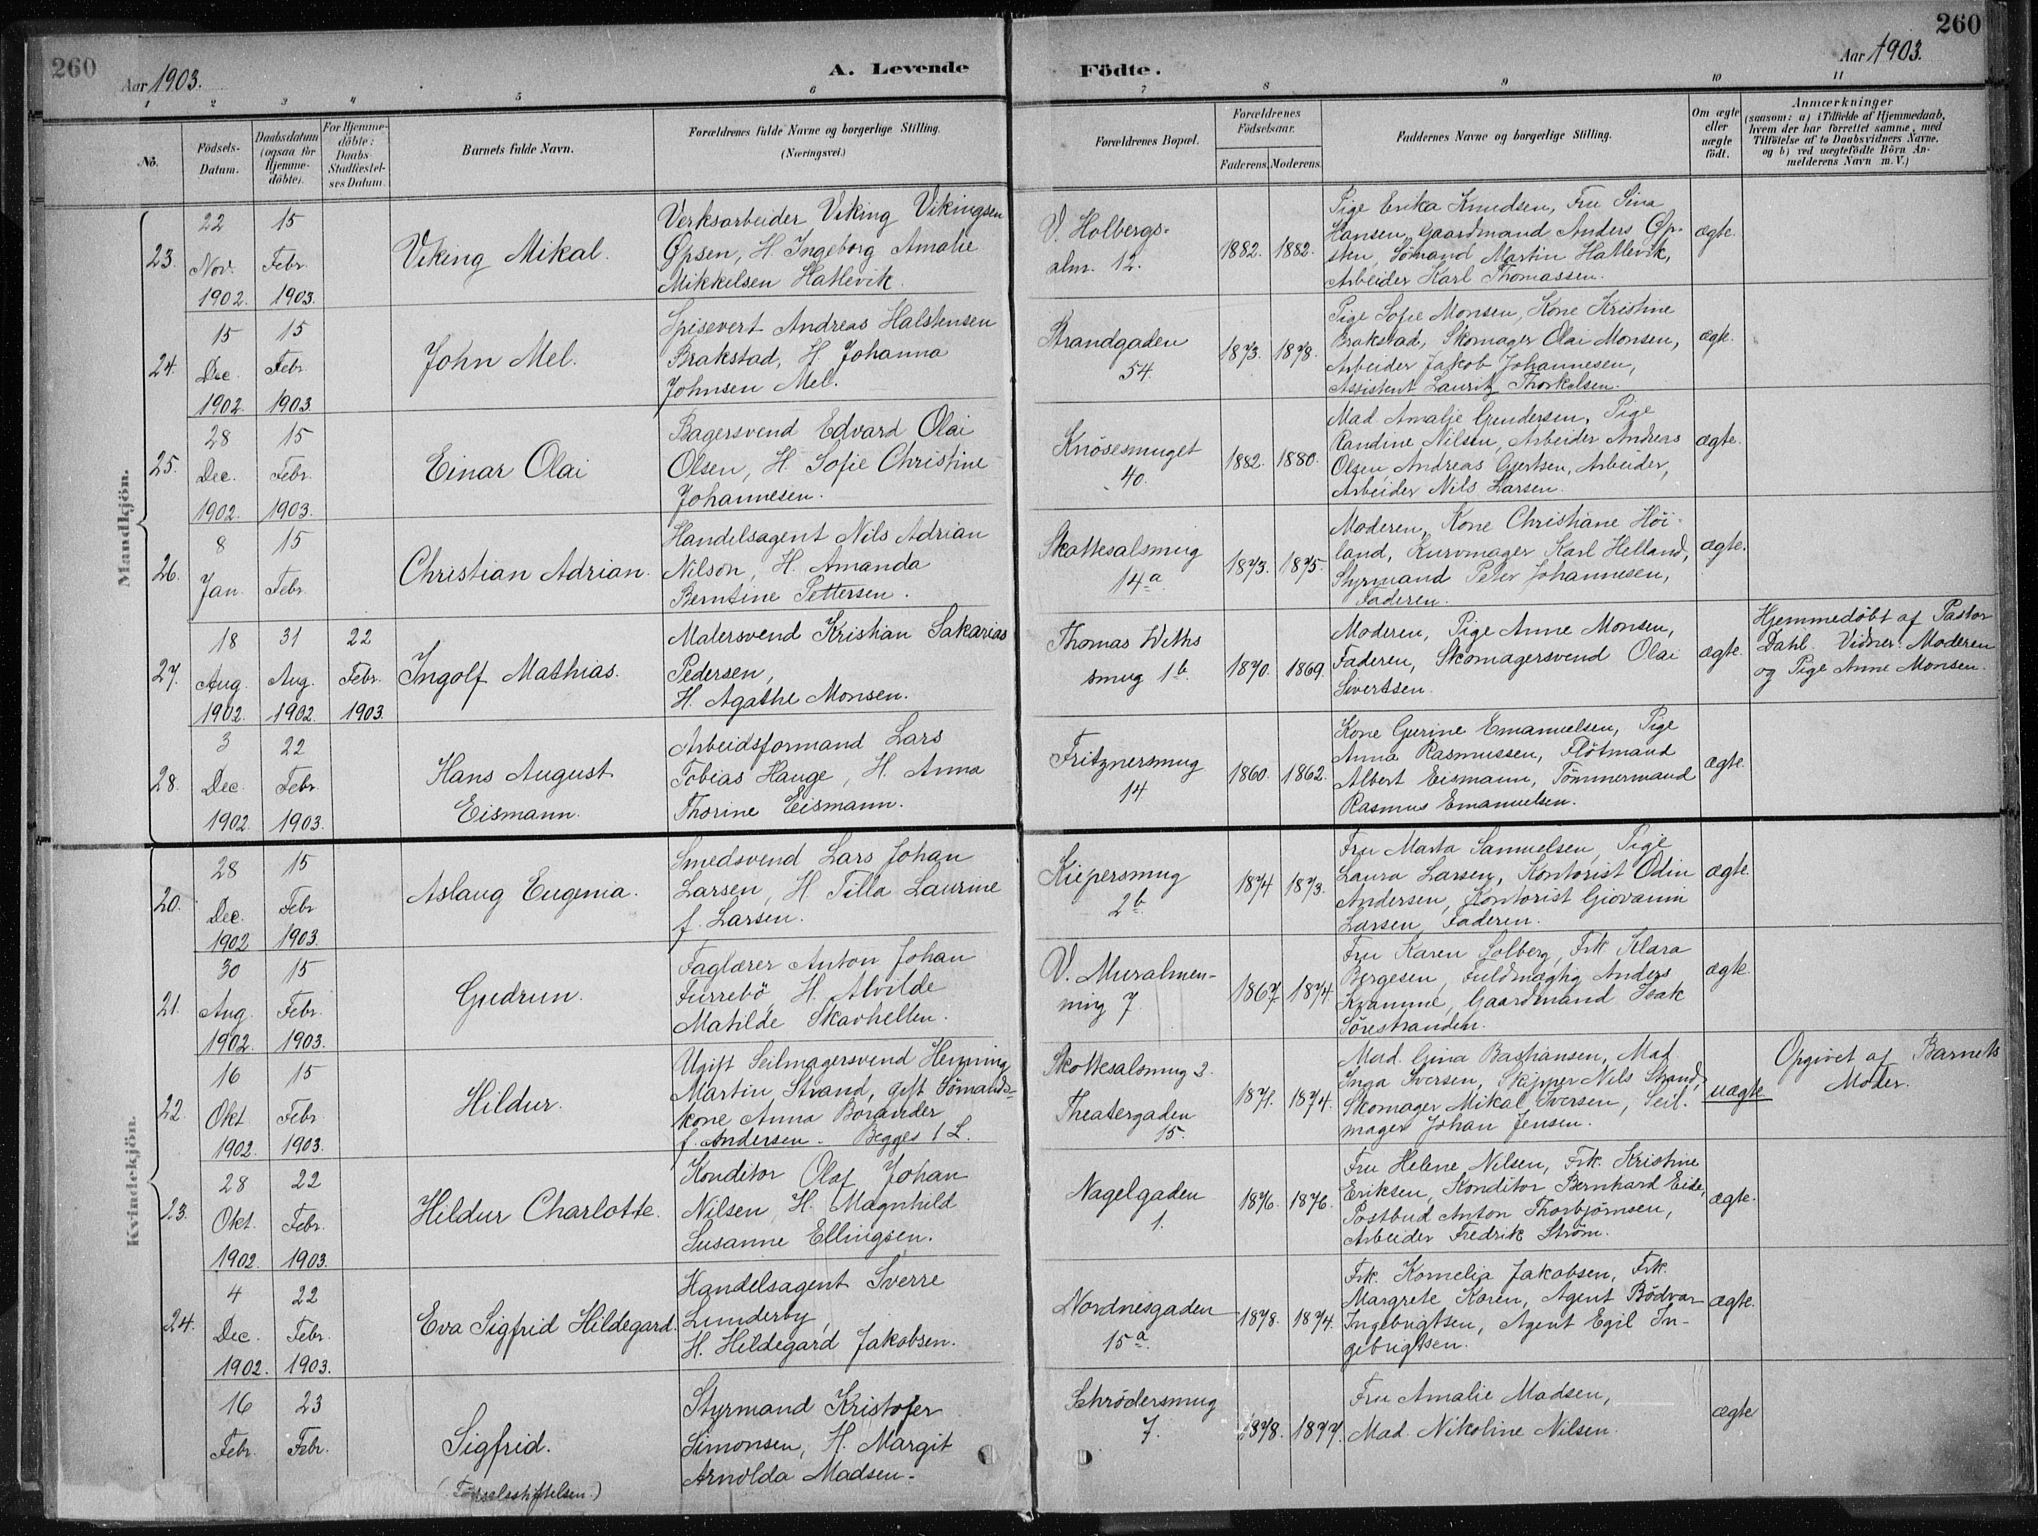 260
Aar 1903.
A. Levende Födte.
Aar 1903.
260
1 2 3 4 5 6 7 8 9 10 11
No.
Födsels-Datum.
Daabsdatum (ogsaa for Hjemmedöbte).
For Hjemmedöbte: Daabs-Stadfæstelses Datum
Barnets fulde Navn.
Forældrenes fulde Navne og borgerlige Stilling.
(Næringsvei.)
Forældrenes Bopæl.
Forældrenes Födselsaar.
Faderens. Moderens.
Faddernes Navne og borgerlige Stilling.
Om ægte eller uægte födt.
Anmærkninger
(saasom: a) i Tilfælde af Hjemmedaab,
hvem der har forrettet samme, med
Tilföielse af to Daabsvidners Navne,
og b) ved uægtefödte Börn Anmelderens Navn m. V.)
Mandkjön.
23.
22 Nov. 1902.
15 Febr. 1903.
Viking Mikal.
Verksarbeider Viking Vikingsen
Øpsen, H. Ingeborg Amalie
Mikkelsen Hatlevik.
V. Holbergs-
alm. 12.
1882. 1882.
Pige Erika Knudsen, Fru Sina
Hansen, Gaardmand Anders Øp-
sten, Sømand Martin Hatlevik,
Arbeider Karl Thomassen.
ægte.
24.
15 Dec. 1902.
15 Febr. 1903.
John Mel.
Spisevert Andreas Halstensen
Brakstad, H. Johanna
Johnsen Mel.
Strandgaden
54.
1873. 1878.
Pige Sofie Monsen, Kone Kristine
Brakstad, Skomager Olai Monsen,
Arbeider Jakob Johannesen,
Assistent Lauritz Thorkelsen.
ægte.
25.
28 Dec. 1902.
15 Febr. 1903.
Einar Olai
Bagersvend Edvard Olai
Olsen, H. Sofie Christine
Johannesen.
Knøsesmuget
40.
1882. 1880.
Mad. Amalie Gundersen, Pige
Randine Nilsen, Arbeider Andreas
Olsen, Andreas Gjertsen, Arbeider,
Arbeider Nils Larsen.
ægte.
26.
8 Jan.
15 Febr.
Christian Adrian.
Handelsagent Nils Adrian
Nilson, H. Amanda
Berntine Pettersen.
Skottesalsmug
14a
1873. 1875.
Moderen, Kone Christiane Høi-
land, Kurvmager Karl Helland,
Styrmand Peter Johannesen,
Faderen.
ægte.
27.
18 Aug. 1902.
31 Aug. 1902.
22 Febr. 1903.
Ingolf Mathias.
Malersvend Kristian Sakarias
Pedersen,
H. Agathe Monsen.
Thomas Weths
smug 1b.
1870. 1869.
Moderen, Pige Anne Monsen,
Faderen, Skomagersvend Olai
Sivertsen.
ægte.
Hjemmedøbt af Pastor
Dahl. Vidner: Moderen
og Pige Anne Monsen.
28.
3 Dec. 1902.
22 Febr. 1903.
Hans August
Eismann.
Arbeidsformand Lars
Tobias Hauge, H. Anna
Thorine Eismann.
Fritznersmug
14
1860. 1862.
Kone Gurine Emanuelsen, Pige
Anna Rasmussen, Fløtmand
Albert Eismann, Tømmermand
Rasmus Emanuelsen.
ægte.
Kvindekjön.
20.
28 Dec. 1902
15 Febr 1903.
Aslaug Eugenia.
Smedsvend Lars Johan
Larsen, H. Tilla Laurine
f. Larsen.
Kiepersmug
2b.
1874 1873.
Fru Marta Samuelsen, Pige
Laura Larsen, Kontorist Odin
Andersen, Kontorist Giovanni
Larsen, Faderen.
ægte.
21.
30 Aug. 1902.
15 Febr. 1903.
Gudrun.
Faglærer Anton Johan
Furrebö, H. Alvilde
Matilde Skarhellen.
V. Muralmen-
ning 7.
1867 1874.
Fru Karen Solberg, Frk. Klara
Bergesen, Fuldmægtig Anders
Kvamme, Gaardmand Isak
Sørestranden.
ægte.
22.
16 Okt 1902.
15 Febr. 1903.
Hildur.
Ugift Seilmagersvend Henning
Martin Strand, gift Sømands-
kone Anna
f. Andersen. Begges 1 L.
Skottesalsmug 2.
Theatergaden
15.
1871. 1874.
Mad. Gina Bastiansen, Mad
Inga Iversen, Skipper Nils Strand,
Skomager Mikal Iversen, Seil-
mager Johan Jensen.
uægte
Opgivet af Barnets
Moder.
23.
28 Okt. 1902.
22 Febr. 1903.
Hildur Charlotte.
Konditor Olaf Johan
Nilsen, H. Magnhild
Susanne Ellingsen.
Nagelgaden
1.
1876. 1876.
Fru Helene Nilsen, Frk. Kristine
Eriksen, Konditor Bernhard Eide,
Postbud Anton Thorbjørnsen,
Arbeider Fredrik Strøm.
ægte.
24.
4 Dec. 1902.
22 Febr. 1903.
Eva Sigfrid Hildegard.
Handelsagent Sverre
Lunderby,
H. Hildegard Jakobsen.
Nordnesgaden
15a.
1878. 1874.
Frk. Kornelia Jakobsen, Frk.
Margrete Koren, Agent Bödvar
Ingebrigtsen, Agent Egil In-
gebrigtsen.
ægte.
16 Febr.
23 Febr.
Sigfrid.
(Fødselsstiftelsen.)
Styrmand Kristofer
Simonsen, H. Margit
Arnolda Madsen.
Schrödersmug
7.
1878. 1877.
Fru Amalie Madsen,
Mad. Nikoline Nilsen.
ægte